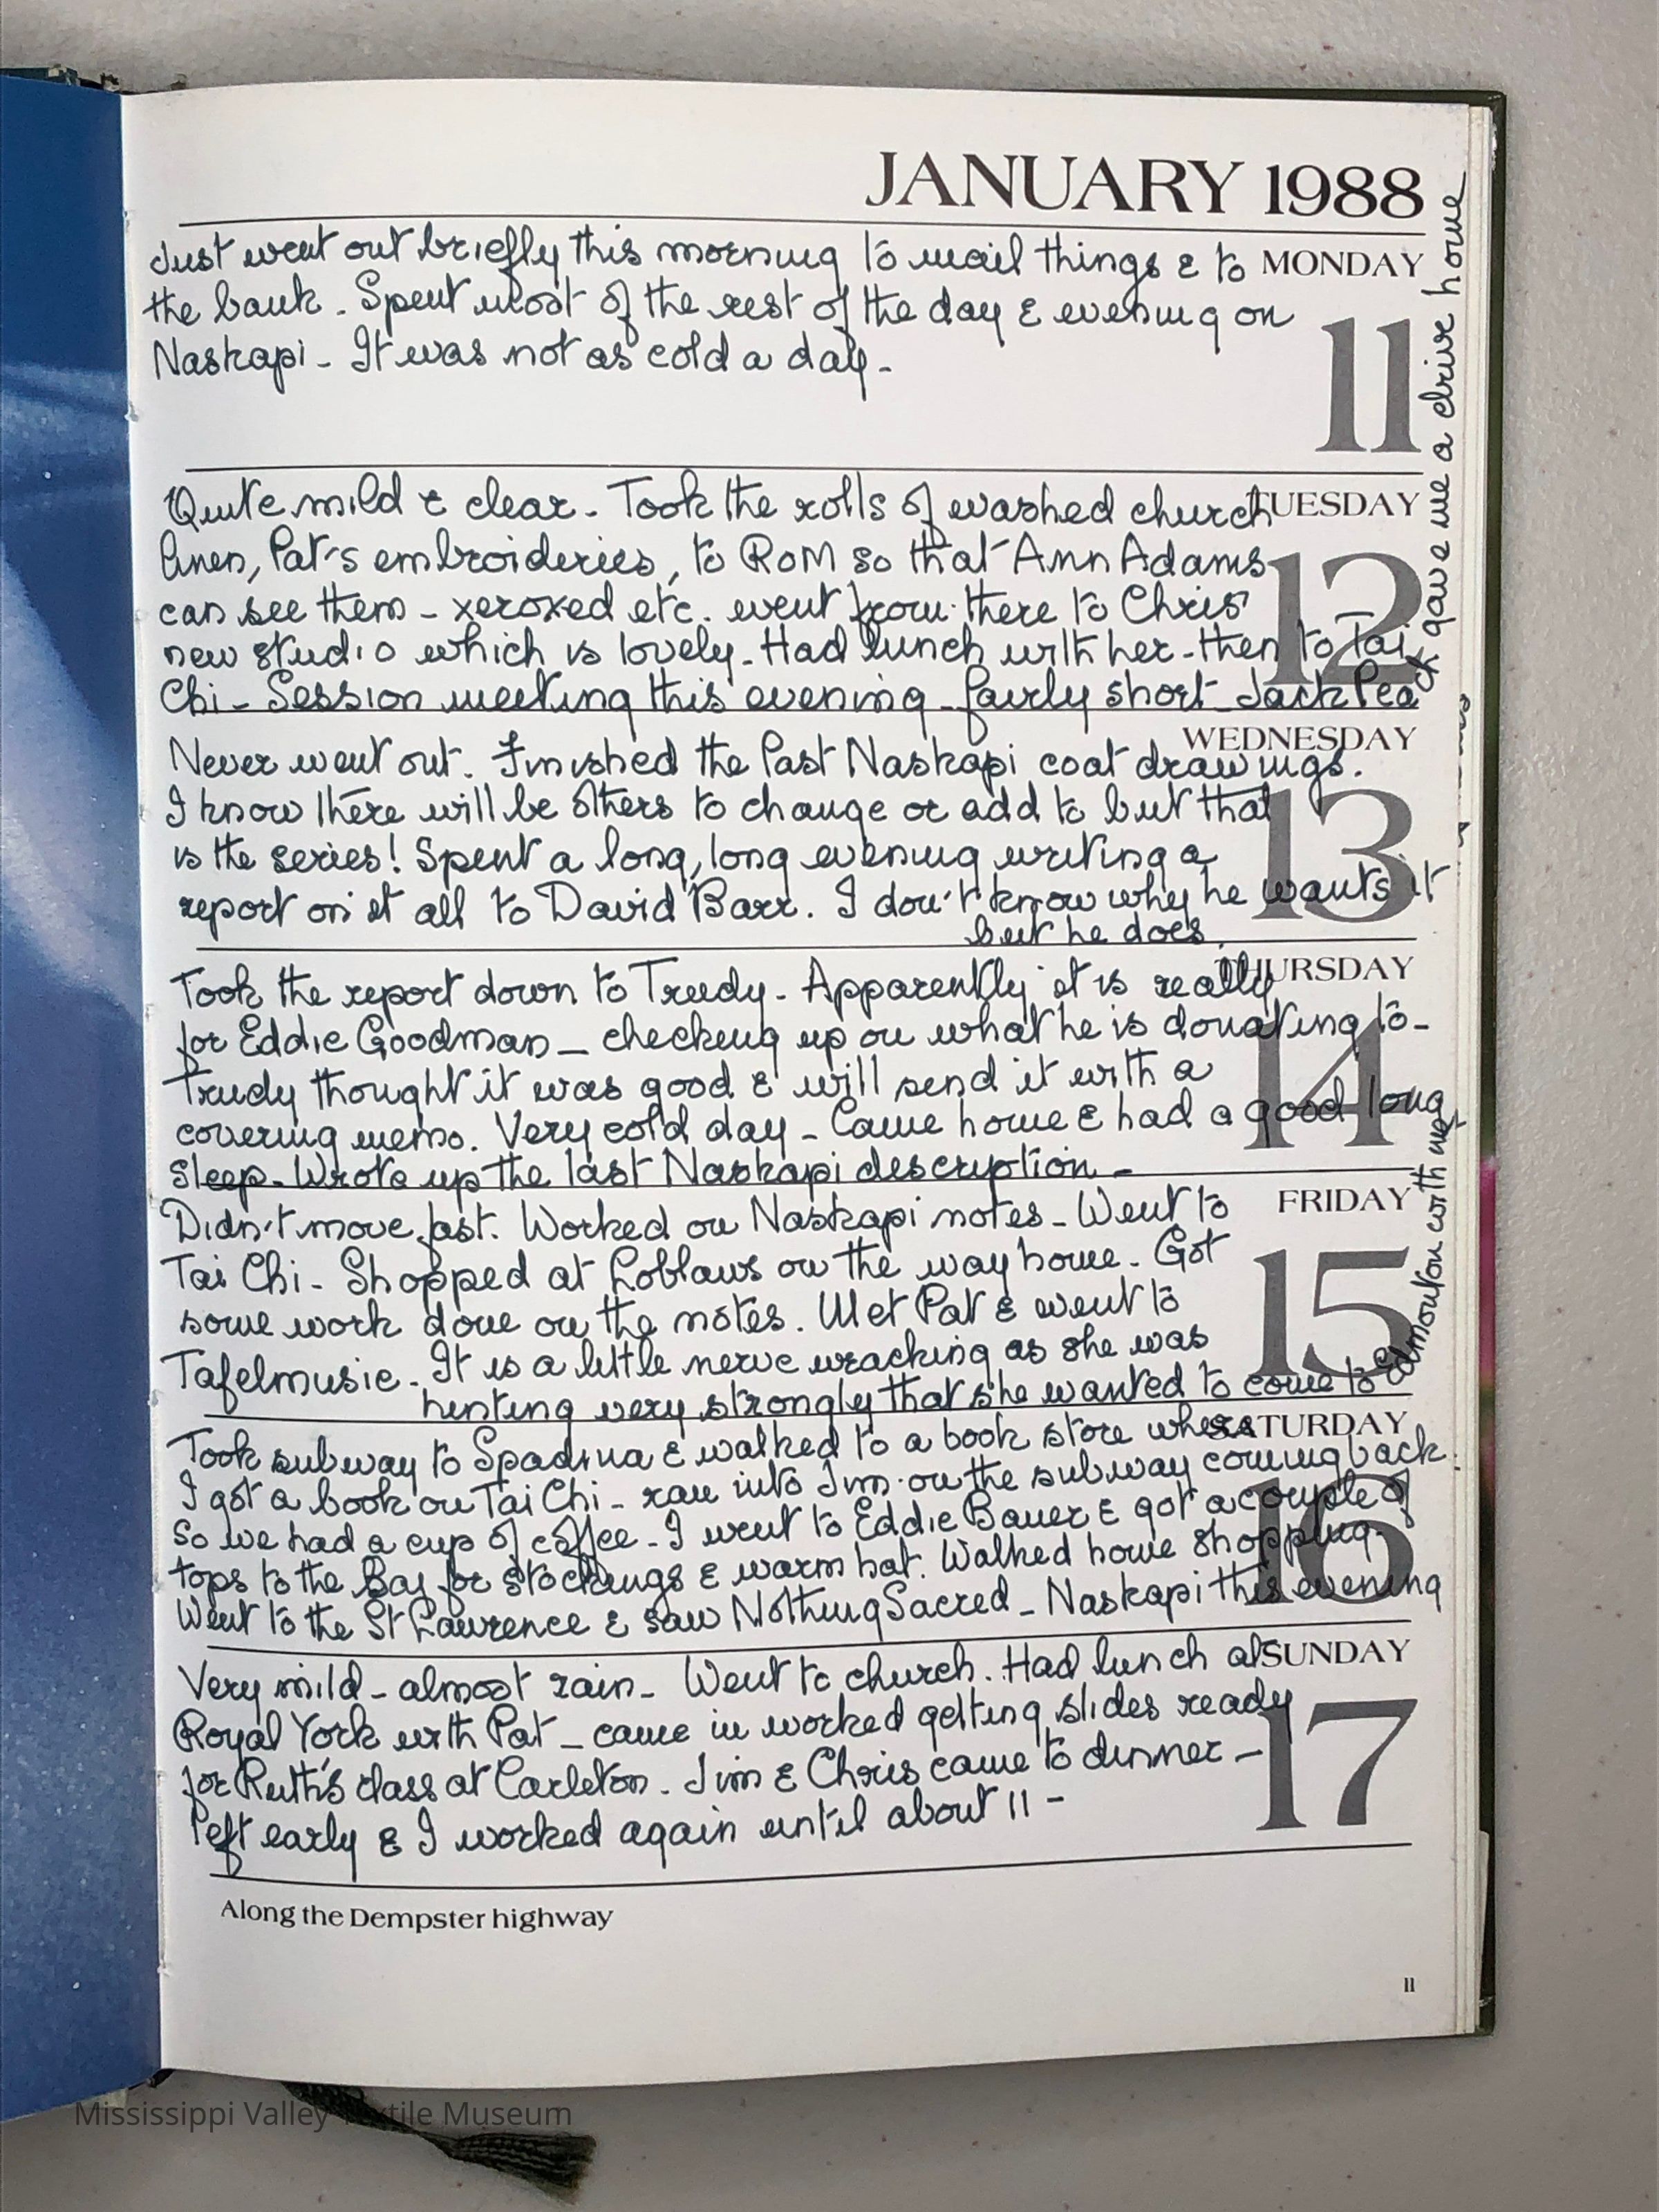 JANUARY 1988
MONDAY
11
Just went out briefly this morning to mail things & to
the bank. Spent most of the rest of the day & evening on
Naskapi - It was not as cold a day -
TUESDAY
12
Quite mild & clear - Took the rolls of washed church
linen, Pat's embroideries, to ROM so that Ann Adams
can see them - xeroxed etc. went from there to Chris'
new studio which is lovely - Had lunch with her - then to Tai
Chi - Session meeting this evening - fairly short - Jack Peack gave me a drive home
WEDNESDAY
13
Never went out. Finished the last Naskapi coat drawings.
I know there will be others to change or add to but that
is the series! Spent a long, long evening writing a
report on it all to David Barr. I don't know why he wants it
but he does.
THURSDAY
14
Took the report down to Trudy - Apparently it is really
for Eddie Goodman - checking up on what he is donating to -
Trudy thought it was good & will send it with a
covering memo. Very cold day - Came home & had a good long
sleep - Wrote up the last Naskapi description -
FRIDAY
15
Didn't move fast. Worked on Naskapi notes - Went to
Tai Chi - Shopped at Loblaws on the way home - Got
some work done on the notes. Met Pat & went to
Tafelmusic - It is a little nerve wracking as she was
hinting very strongly that she wanted to come to Edmonton with me
SATURDAY
16
Took subway to Spadina & walked to a book store where
I got a book on Tai Chi - ran into Jim on the subway coming back.
So we had a cup of coffee - I went to Eddie Bauer & got a couple of
tops to the Bay for stockings & warm hat. Walked home shopping -
Went to the St Lawrence & saw Nothing Sacred - Naskapi this evening
SUNDAY
17
Very mild - almost rain - Went to church. Had lunch at
Royal York with Pat - came in worked getting slides ready
for Ruth's class at Carleton. Jim & Chris came to dinner -
left early & I worked again until about 11 -
Along the Dempster highway
11
Mississippi Valley Textile Museum